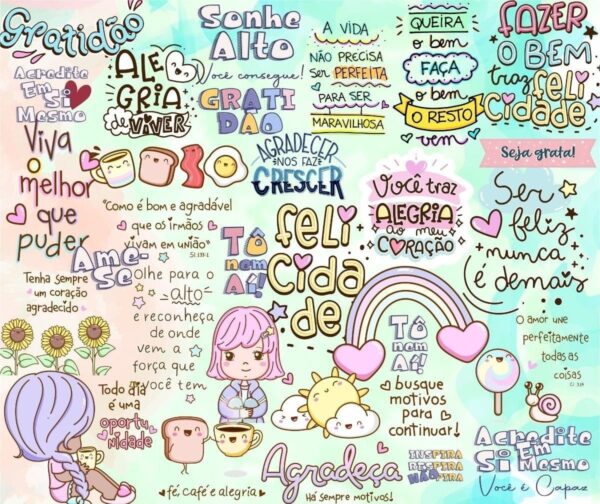 Gratidão
Acredite
Em Si
Mesmo
ALE
GRIA
de VIVER
Sonhe
Alto
Você consegue!
GRATI
DÃO
A VIDA
NÃO PRECISA
Ser PERFEITA
PARA SER
MARAVILHOSA
QUEIRA
o bem
FAÇA
o bem
O RESTO
vem
FAZER
O BEM
traz
FELI
CIDADE
Viva
o
melhor
que
puder
AGRADECER
NOS FAZ
CRESCER
Você traz
ALEGRIA
ao meu
CORAÇÃO
Seja grata!
Ser
feliz
nunca
é demais
"Como é bom e agradável
que os irmãos
vivam em união"
Sl 133:1
Ame-
Se
Tenha sempre
um coração
agradecido
Olhe para o
alto
e reconheça
de onde
vem a
força que
você tem
Tô
nem
Aí!
feli
cida
de
Tô
nem
Aí!
busque
motivos
para
continuar!
O amor une
perfeitamente
todas as
coisas
Cl 3:14
Todo dia
é uma
oportu
nidade
fé, café e alegria
Agradeça
Há sempre motivos!
INSPIRA
RESPIRA
NÃO PIRA
Acredite
Em
Si Mesmo
Você é Capaz